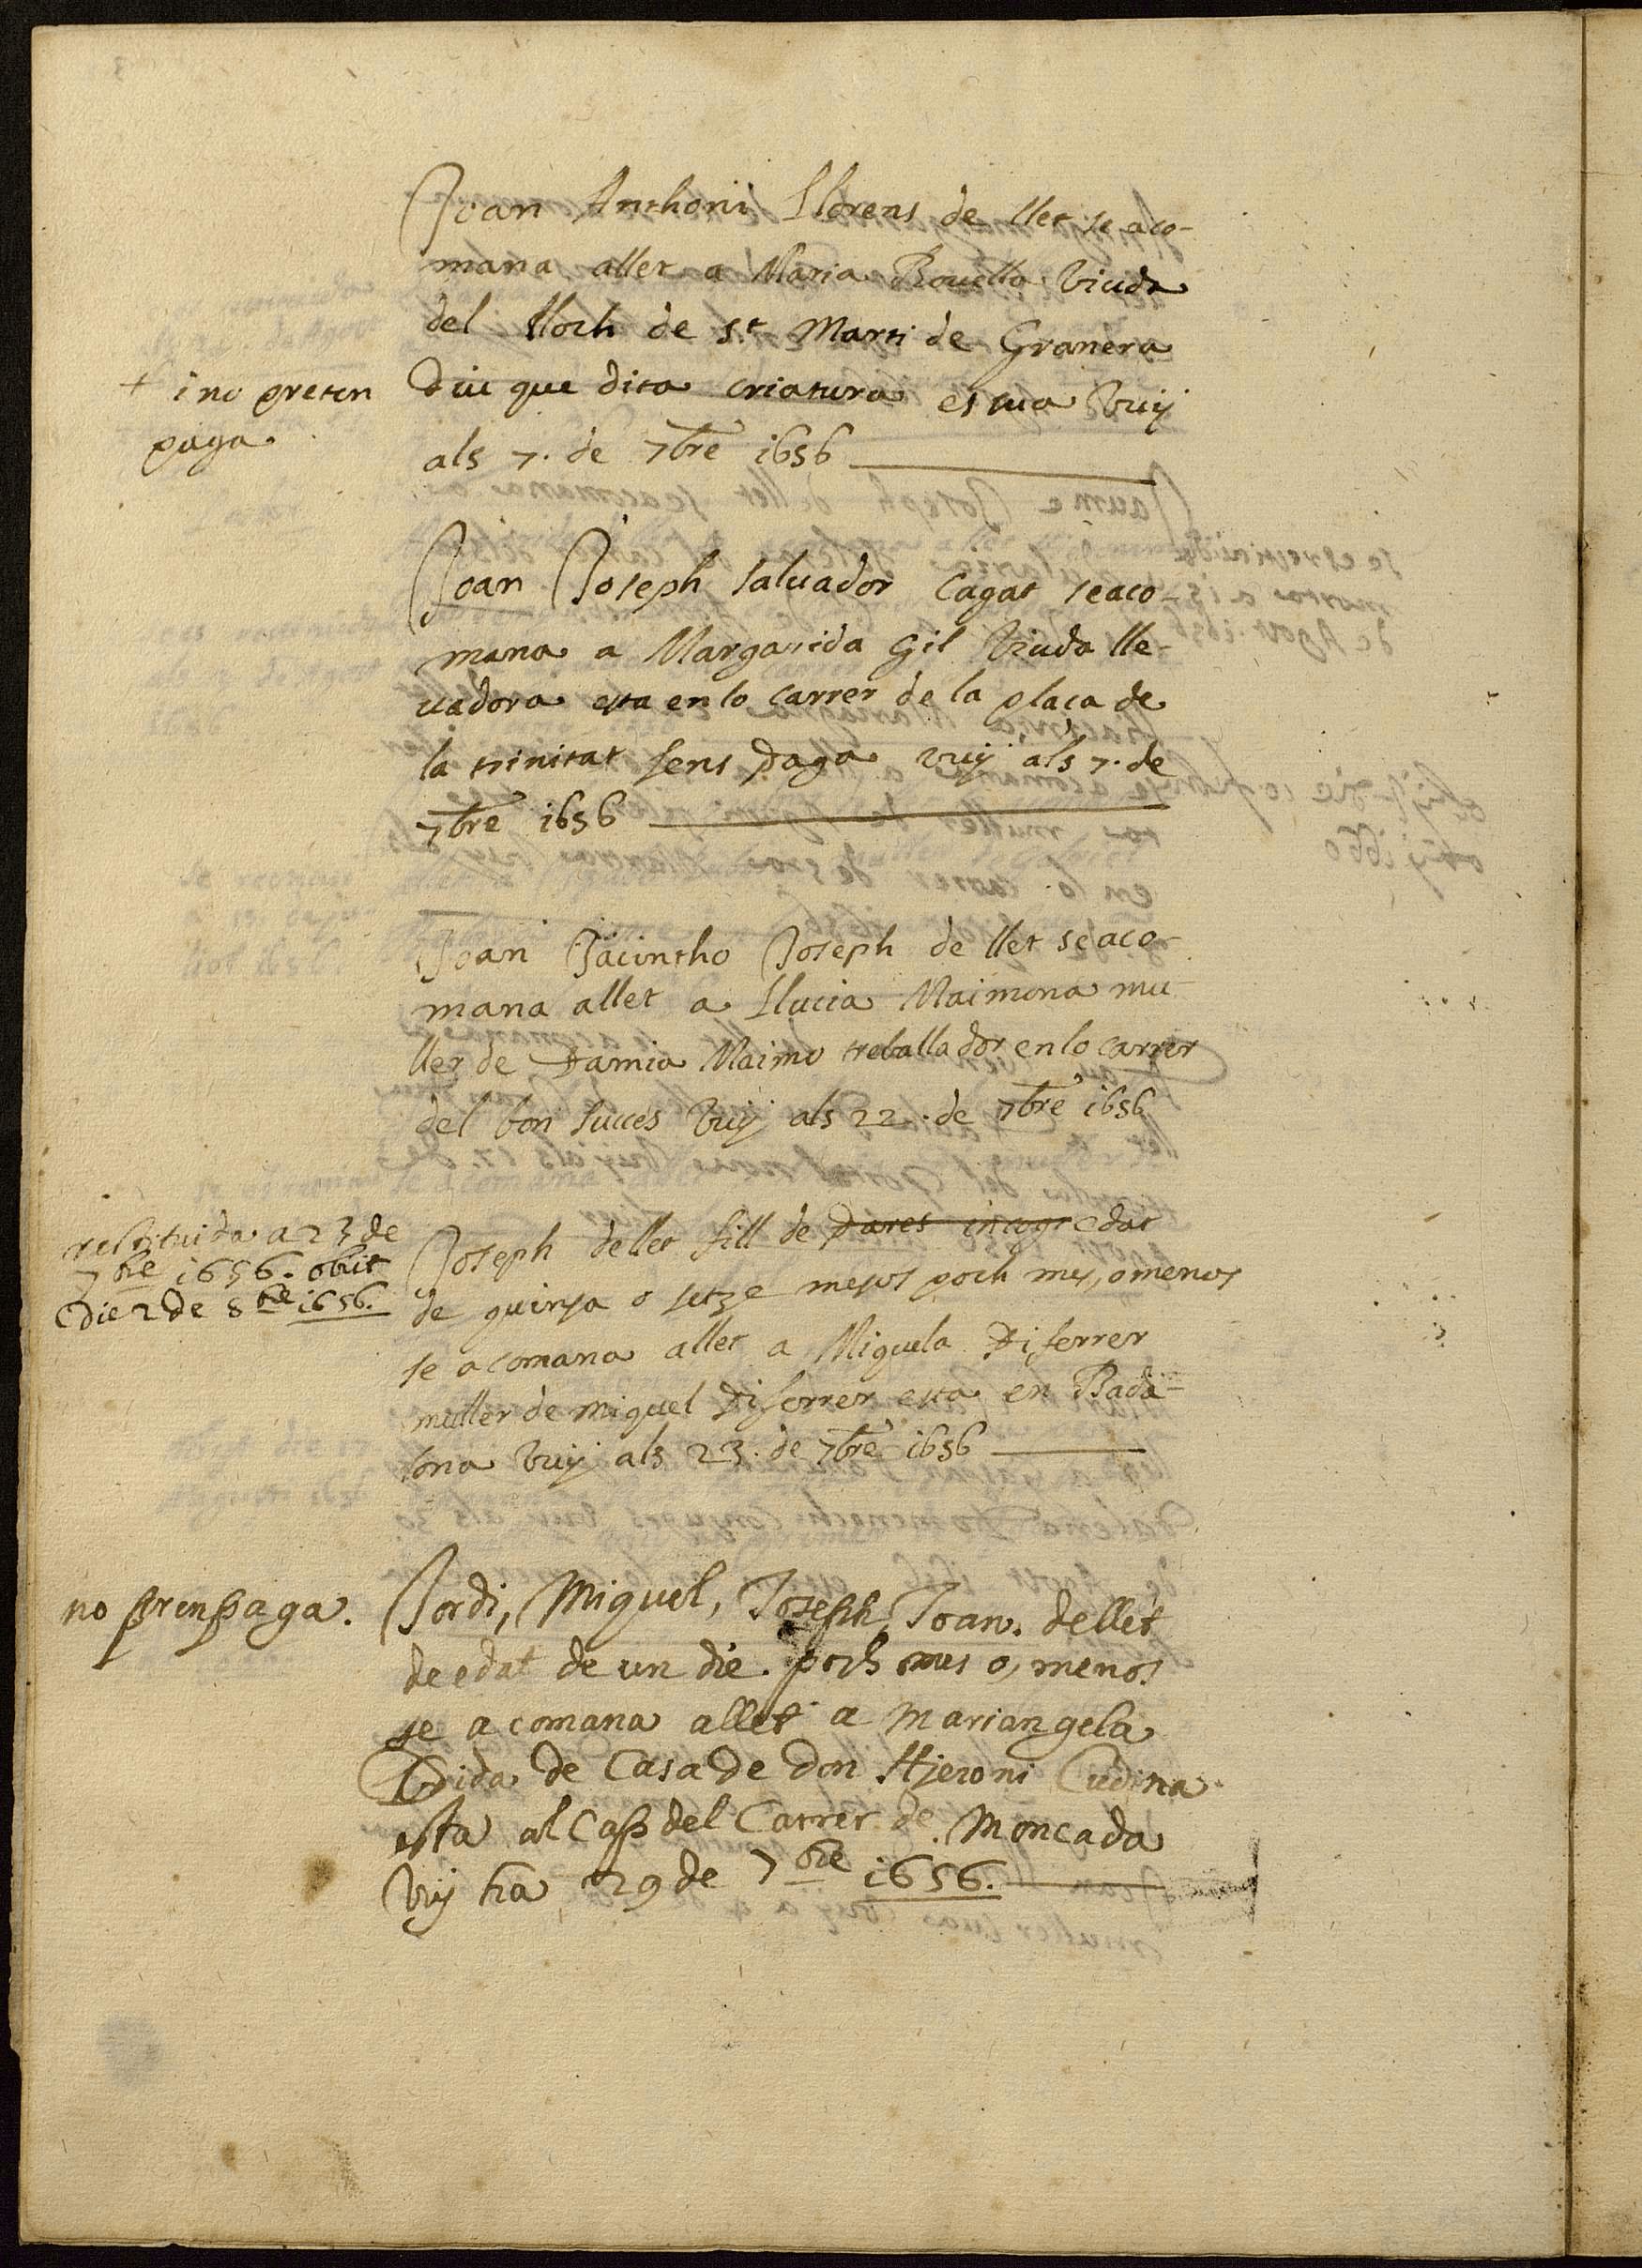 Joan Anthoni Llorens de llet se aco-
mana allet a Maria Rouella Viuda
del lloch de St Marti de Granera
+ i no preten
paga
Diu que dita criatura es sua Vuÿ
als 7. de 7bre 1656
Joan Joseph saluador Cagat se aco-
mana a Margarida Gil Viuda lle-
uadora esta en lo carrer de la plaça de
la trinitat sens paga vuÿ als 7. de
7bre 1656
Joan Jacintho Joseph de llet se aco-
mana allet a Llucia Maimona mu-
ller de Damia Maimo treballador en lo carrer
del bon succes Vuÿ als 22. de 7bre 1656
restituida a 23 de
7bre 1656. obiit
Die 2 de 8bre 1656.
Joseph de llet fill de Pares incog edat
de quinsa o setze mesos poch mes, o menos
se acomana allet a Miquela Diferrer
muller de miquel Diferrer esta en Bada-
lona Vuÿ als 23. de 7bre 1656
no pren paga.
Jordi, Miquel, Joseph, Joan. de llet
de edat de un die. poch mes o, menos
se acomana allet a Mariangela
Dida de Casa de Don Hjeroni
esta al Cap del Carrer de Moncada
Vuÿ ha 29 de 7bre 1656.